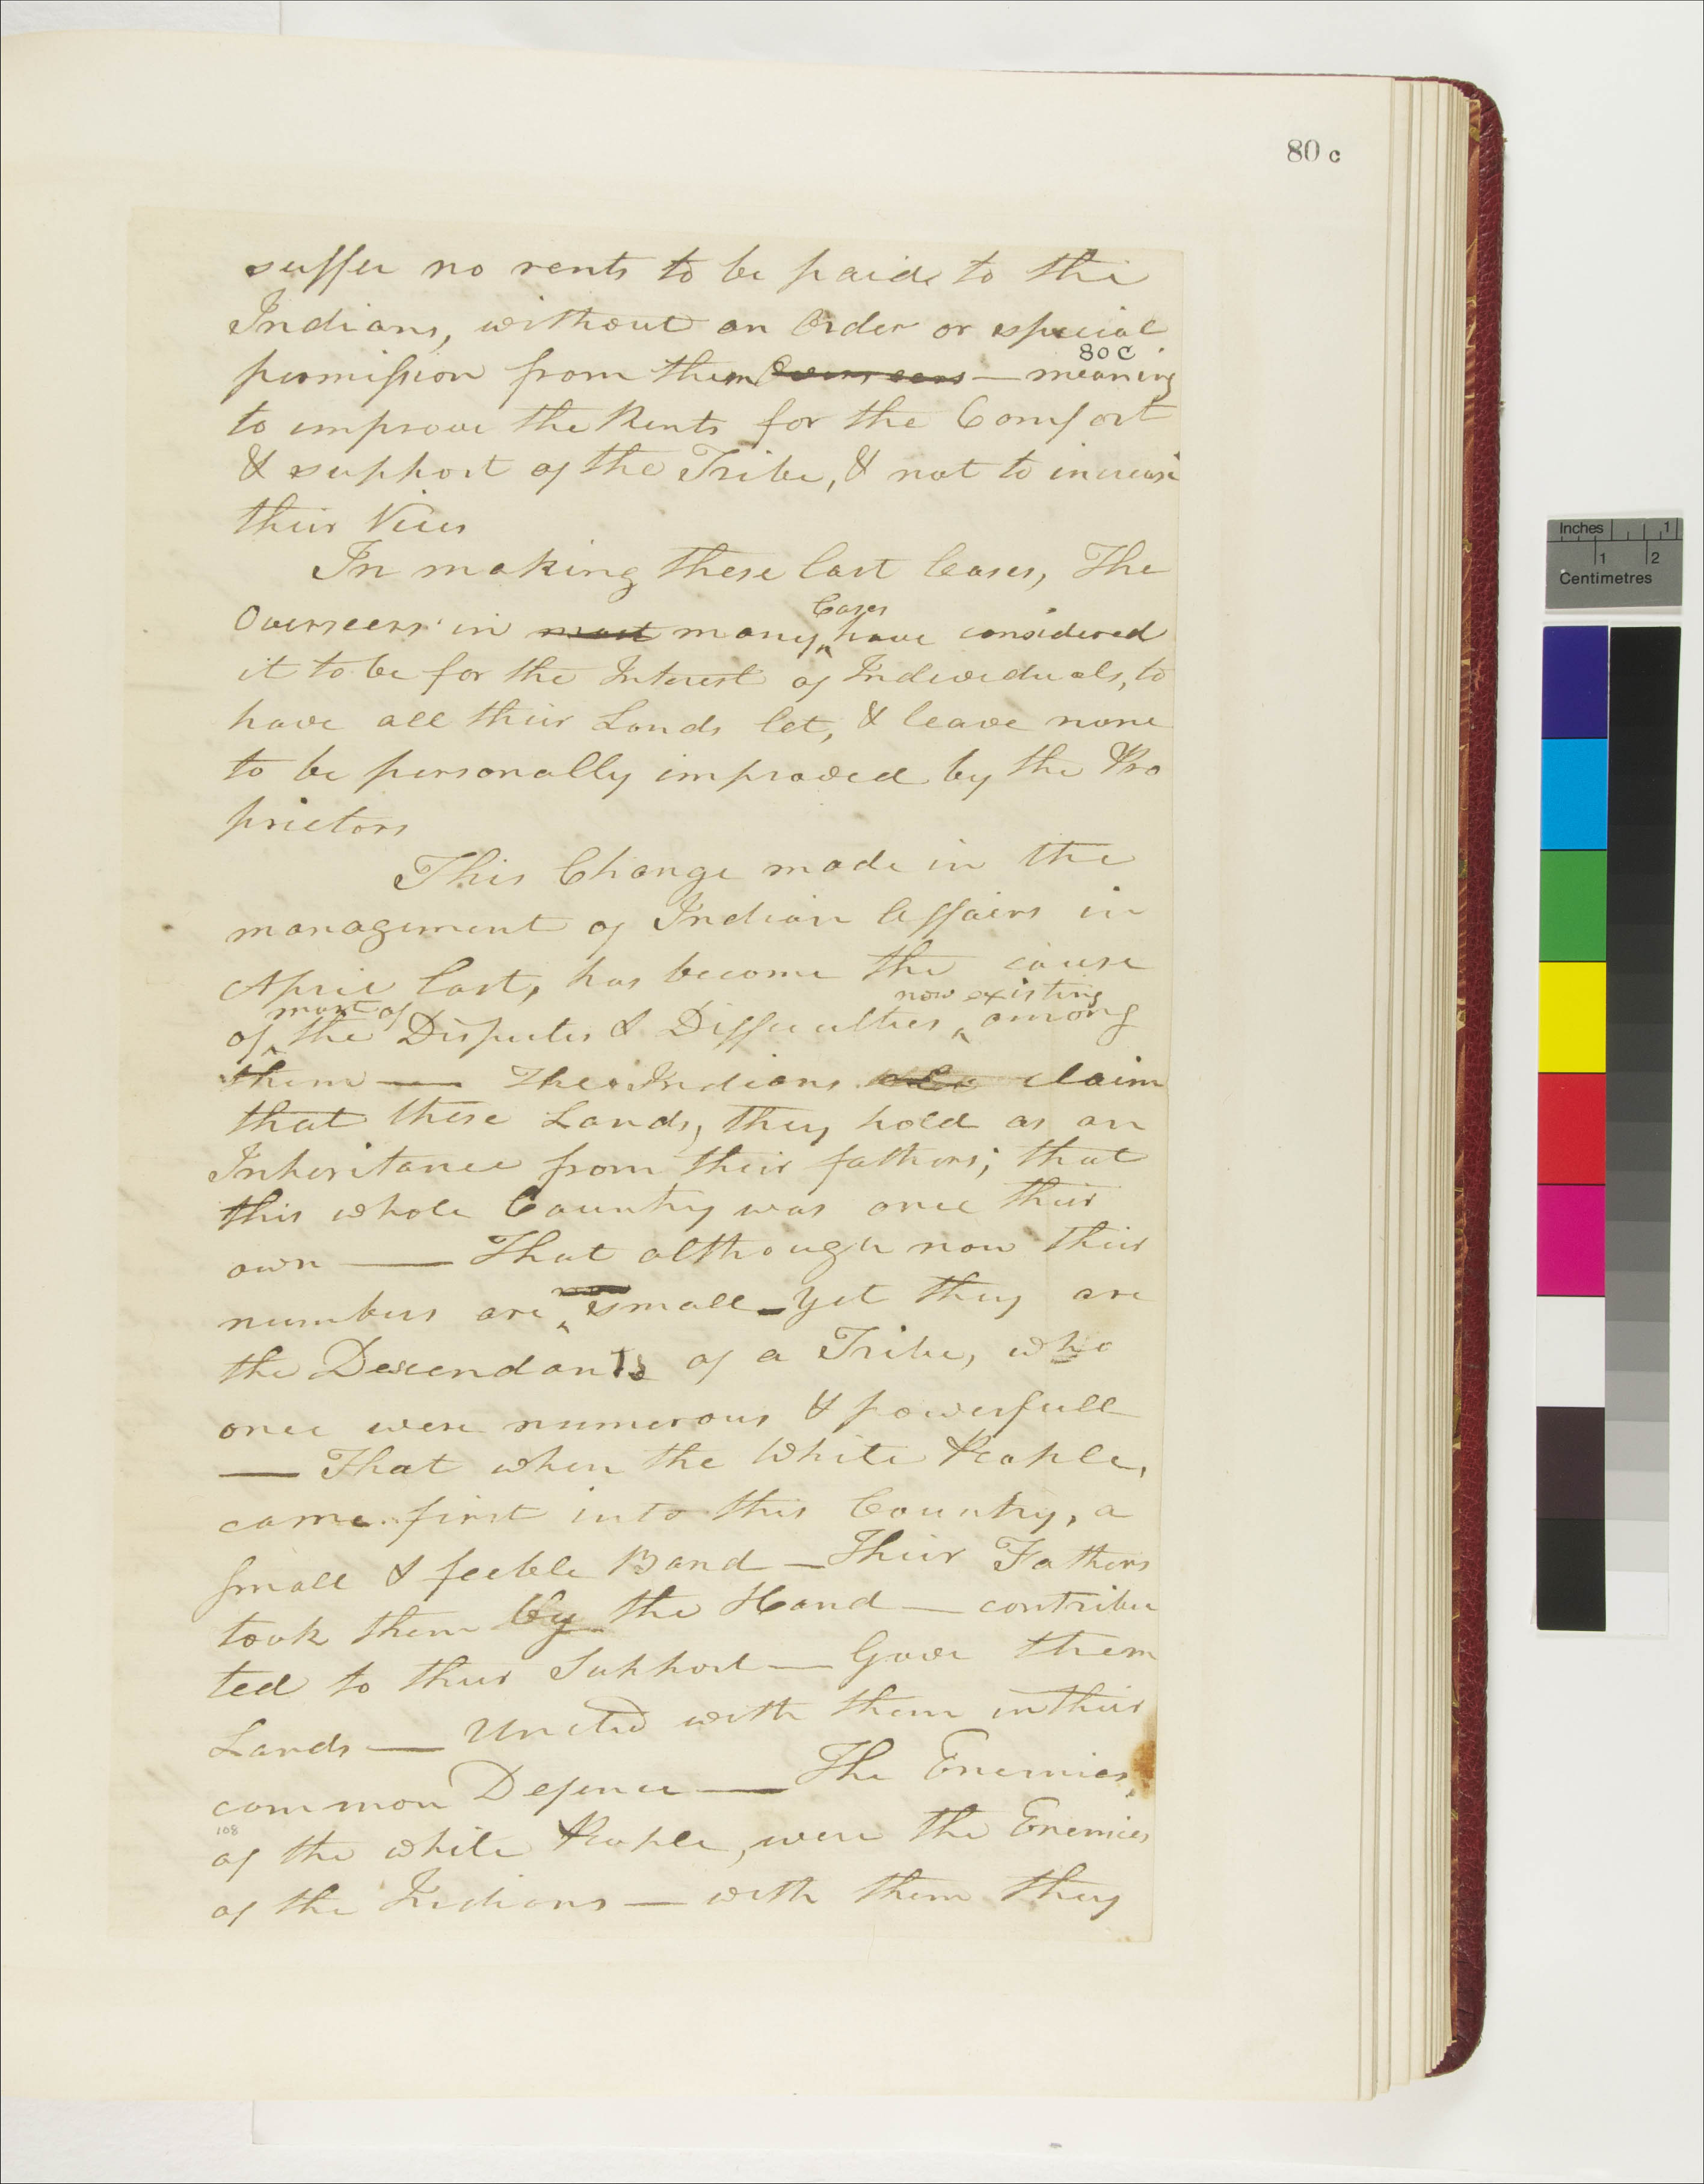 80 c
suffer no rents to be paid to the
Indians, without an Order or special
80 C
permission from them Overseers — meaning
to improve the Rents for the Comfort
& support of the Tribe, & not to increase
their Vices
In making these last leases, The
Cases
Overseers in most many have considered
it to be for the Interest of Individuals, to
have all their Lands let, & leave none
to be personally improved by the Pro
prietors
This Change made in the
management of Indian Affairs in
April last, has become the cause
most of now existing
of the Disputes & Difficulties among
them — The Indians claim
that these Lands, they hold as an
Inheritance from their fathers; that
this whole Country was once their
own — That although now their
now
numbers are small — yet they are
the Descendants of a Tribe, who
once were numerous & powerfull
— That when the White People,
came first into this Country, a
small & feeble Band — Their Fathers
took them by the Hand — contribu
ted to their Support — Gave them
Lands — United with them in their
common Defence — The Enemies,
108
of the white People, were the Enemies
of the Indians — with them they
Inches 1
1 2
Centimetres